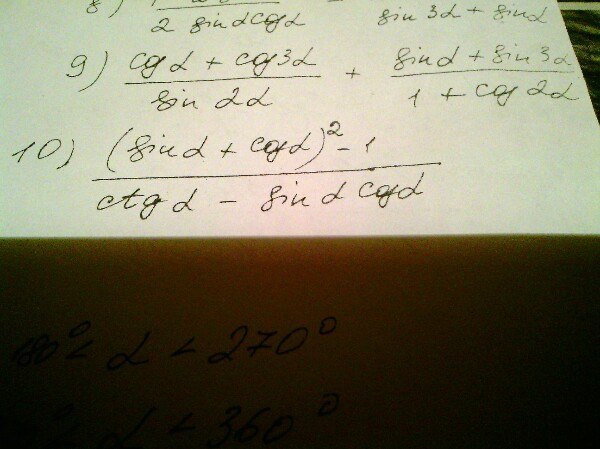 8)
2 sin α cos α sin 3α + sin α
9) cos α + cos 3α / sin 2α + sin α + sin 3α / 1 + cos 2α
10) (sin α + cos α)² - 1 / ctg α - sin α cos α
180° < α < 270°
α < 360°